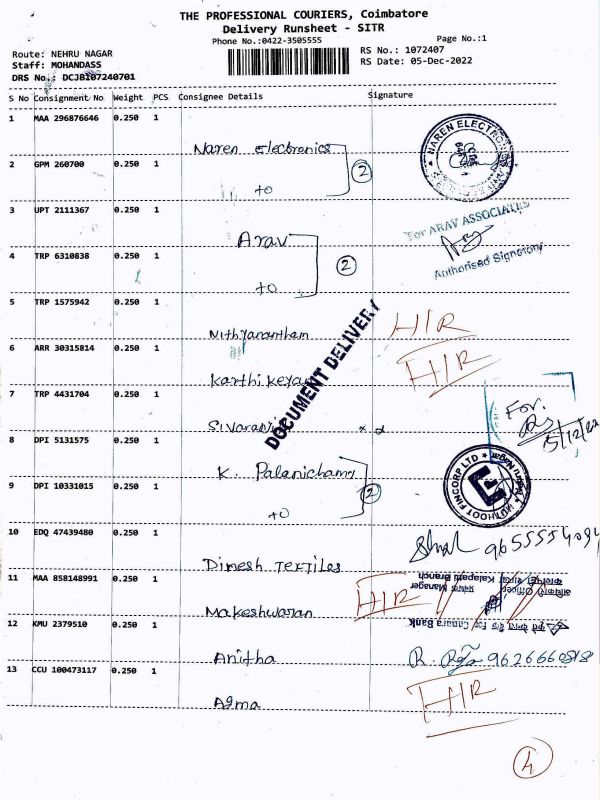 THE PROFESSIONAL COURIERS, Coimbatore
Delivery Runsheet - SITR
Phone No.:0422-3505555
Page No.:1
Route: NEHRU NAGAR
RS No.: 1072407
Staff: MOHANDASS
RS Date: 05-Dec-2022
DRS No.: DCJBI07240701
S No Consignment No Weight PCS Consignee Details Signature
1 MAA 296876646 0.250 1
Naren Electronics
NAREN ELECTRONI
2 GPM 260700 0.250 1
to
2
3 UPT 2111367 0.250 1
Arav
For ARAV ASSOCIATES
4 TRP 6310838 0.250 1
to
2
Authorised Signatory
5 TRP 1575942 0.250 1
Nithyanantham
H/R
6 ARR 30315814 0.250 1
Karthikeyan
H/R
DOCUMENT DELIVERY
7 TRP 4431704 0.250 1
For.
15/12/22
8 DPI 5131575 0.250 1
K. Palanichamy
MUTHOOT FINCORP LTD
9 DPI 10331015 0.250 1
to
2
10 EDQ 47439480 0.250 1
Dinesh Textiles
11 MAA 858148991 0.250 1
Makeshwaran
H/R
Officer
Manager
Kalapatti Branch
12 KMU 2379510 0.250 1
Canara Bank
Anitha
9626660818
13 CCU 100473117 0.250 1
Agma
H/R
4